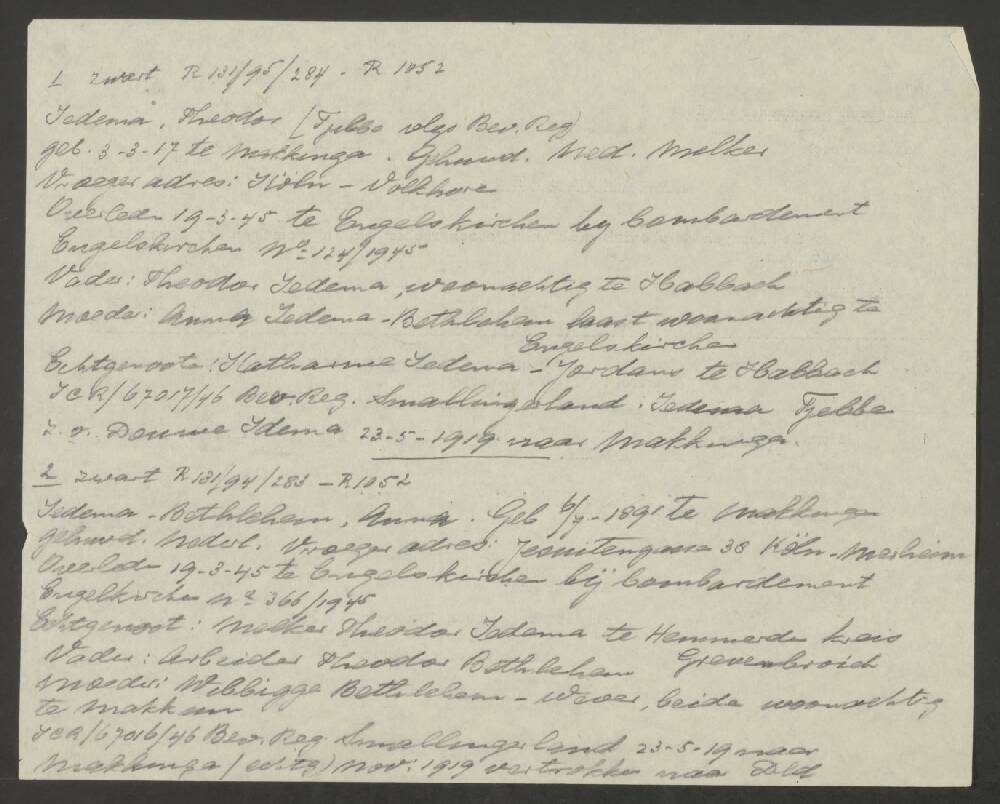 1 zwart R 131/95/284 - R 1052
Iedema, Theodor (Tjebbe vlgs Bev. Reg)
geb. 3-3-17 te Makkinga. Gehuwd. Ned. Melker
Vroeger adres: Köln - Volkhove
Overleden 19-3-45 te Engelskirchen by bombardement
Engelskirchen No 124/1945
Vader: Theodor Iedema, woonachtig te Habbach
Moeder: Anna Iedema-Bethlehem laatst woonachtig te
Engelskirchen
Echtgenoote: Katharine Iedema - Jordans te Habbach
ICR/67017/46 Bev. Reg. Smallingerland. Iedema Tjebbe
z.v. Douwe Idema 23-5-1919 naar Makkinga.
2 zwart R 131/94/283 - R 1052
Iedema-Bethlehem, Anna. Geb 6/7-1891 te Makkinga
gehuwd. Nederl. Vroeger adres: 38 Köln-Merheim
Overleden 19-3-45 te Engelskirchen bij bombardement
Engelkirchen No 366/1945
Echtgenoot: Melker Theodor Iedema te Hemmerden kreis
Grevenbroich
Vader: Arbeider Theodor Bethlehem
Moeder: Wibbigge Bethlehem - Wever, beide woonachtig
te Makkum
ICR/67016/46 Bev. Reg Smallingerland 23-5-19 naar
Makkinga Nov. 1919 vertrokken naar Dld